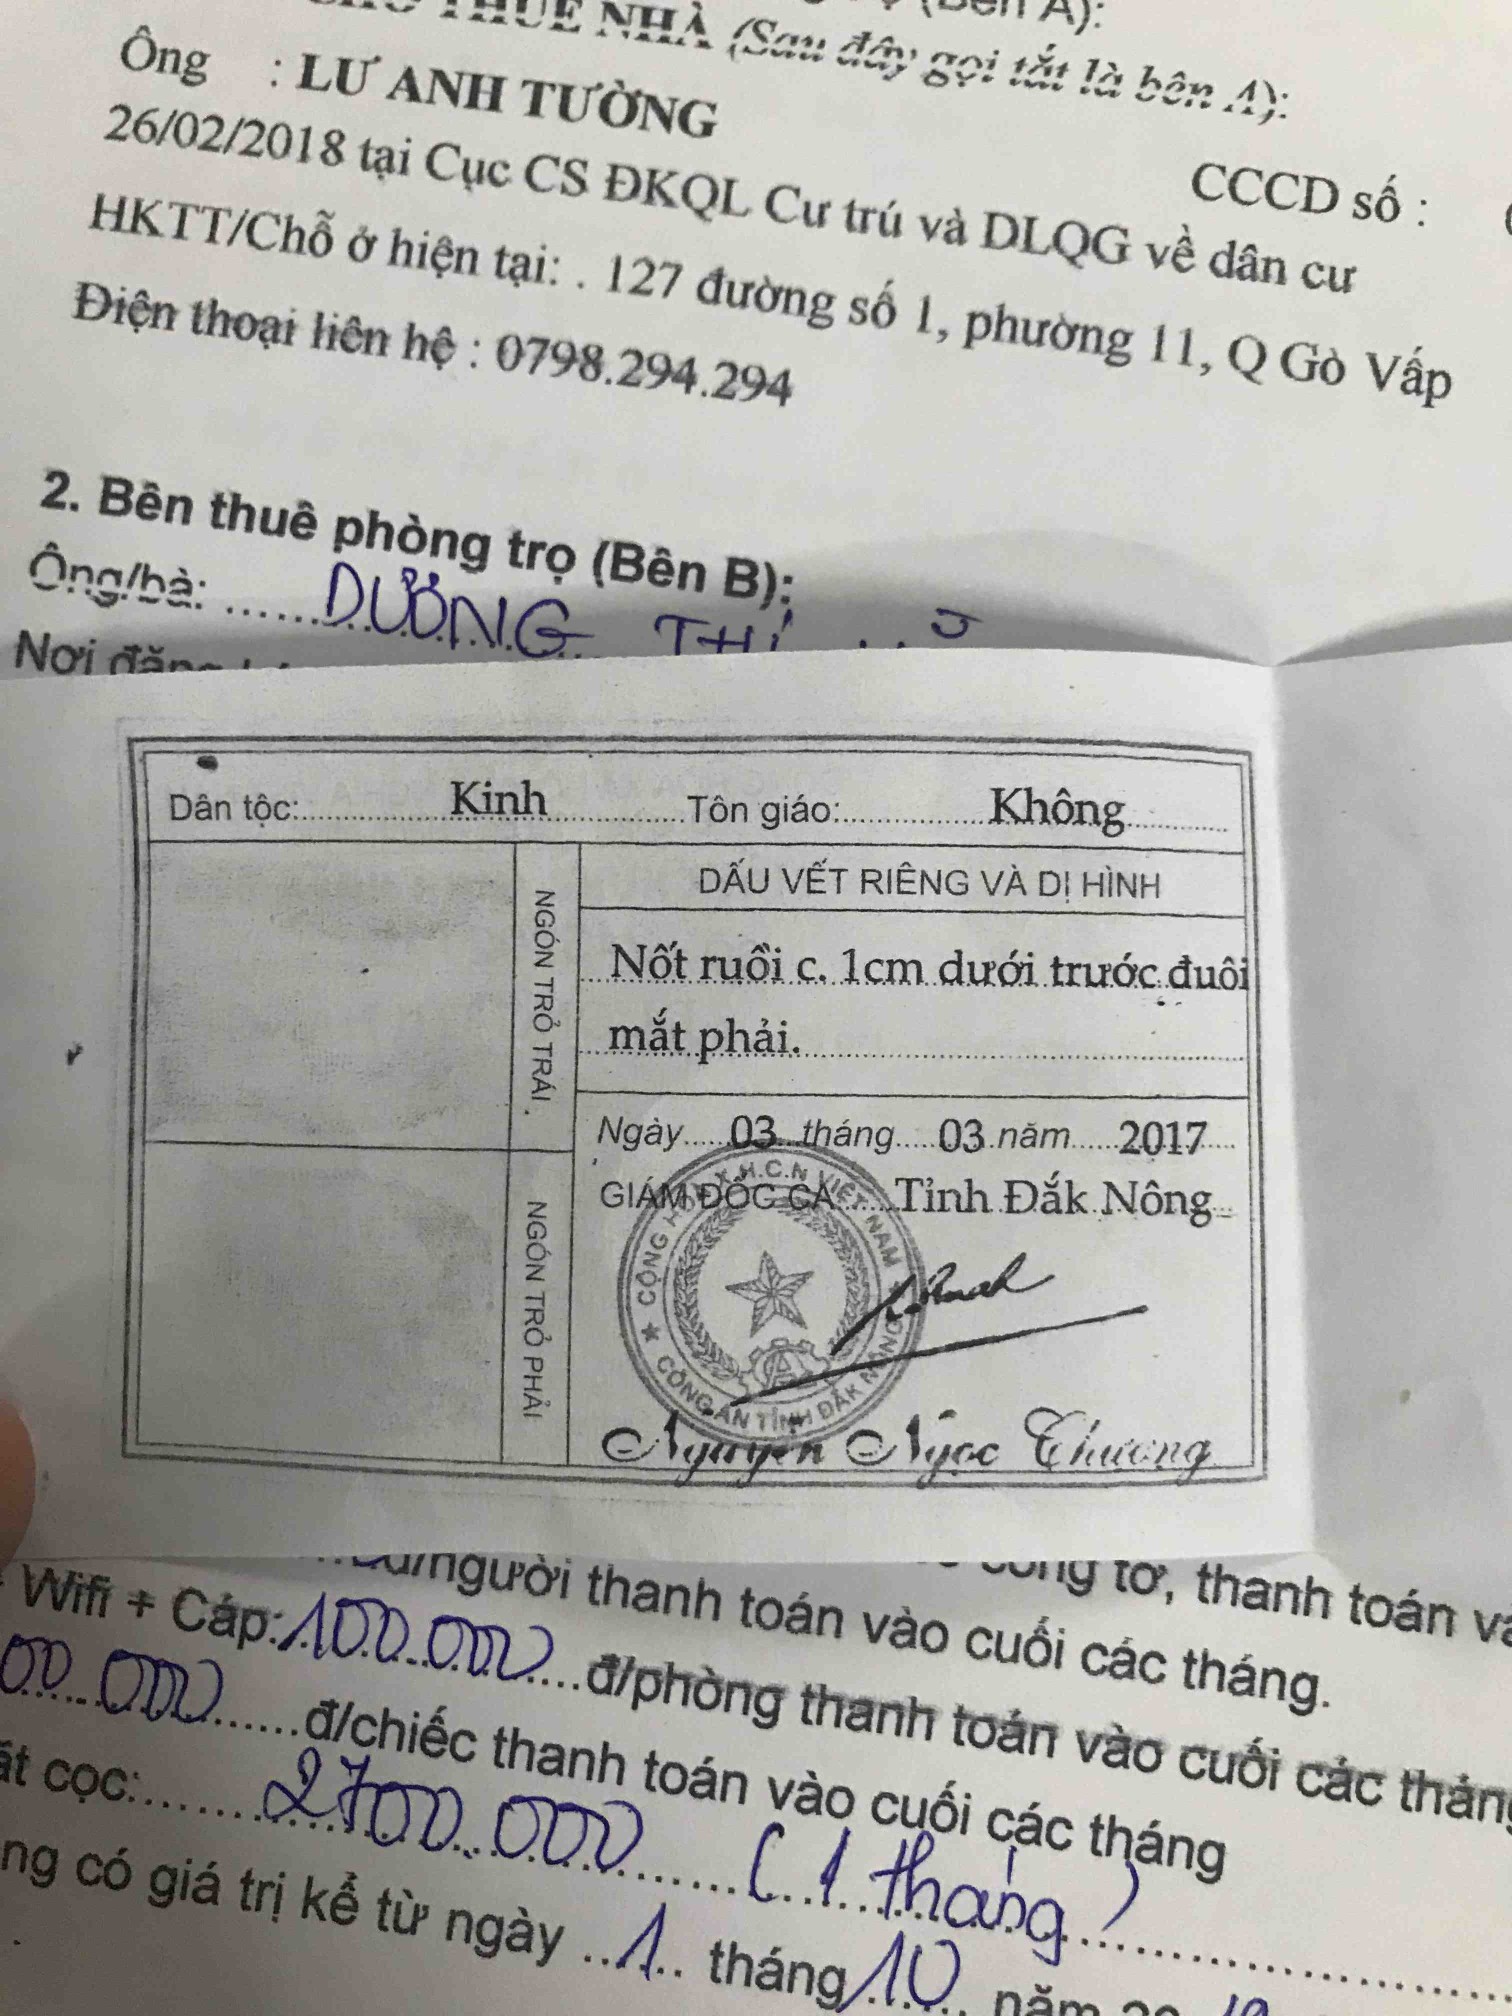 (Bên A):
THUÊ NHÀ (Sau đây gọi tắt là bên A):
Ông : LƯ ANH TƯỜNG
CCCD số :
26/02/2018 tại Cục CS ĐKQL Cư trú và DLQG về dân cư
HKTT/Chỗ ở hiện tại: . 127 đường số 1, phường 11, Q Gò Vấp
Điện thoại liên hệ : 0798.294.294
2. Bên thuê phòng trọ (Bên B):
Ông/bà: ...... DƯƠNG THỊ
Nơi
Dân tộc: Kinh Tôn giáo: Không
NGÓN TRỎ TRÁI
DẤU VẾT RIÊNG VÀ DỊ HÌNH
Nốt ruồi c. 1cm dưới trước đuôi
mắt phải.
Ngày 03 tháng 03 năm 2017
GIÁM ĐỐC CA Tỉnh Đắk Nông
NGÓN TRỎ PHẢI
CỘNG HÒA X.H.C.N VIỆT NAM
CÔNG AN TỈNH ĐẮK NÔNG
Nguyễn Ngọc Chương
công tơ, thanh toán
/người thanh toán vào cuối các tháng.
Wifi + Cáp: 100.000 đ/phòng thanh toán vào cuối các tháng
00.000 đ/chiếc thanh toán vào cuối các tháng
cọc: 2700.000 (1 tháng)
có giá trị kể từ ngày 1 tháng 10 năm